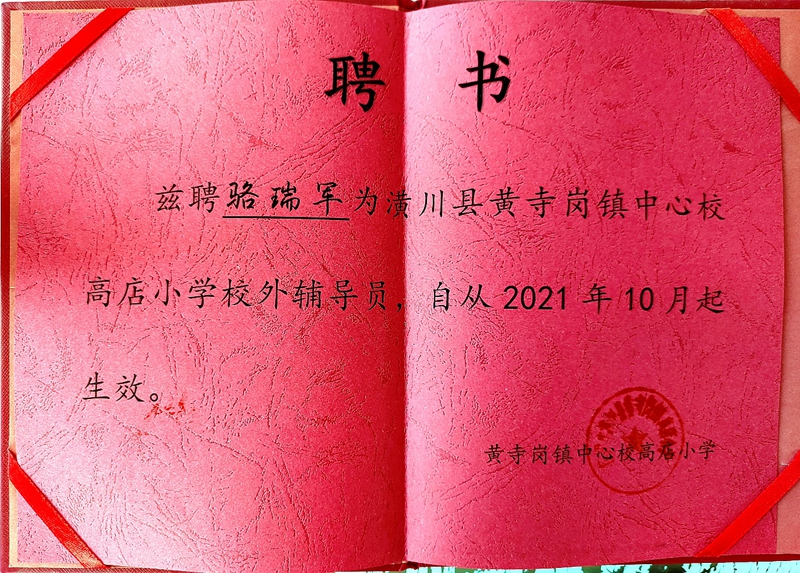 聘 书
兹聘骆瑞军为潢川县黄寺岗镇中心校
高店小学校外辅导员，自从2021年10月起
生效。
黄寺岗镇中心校高店小学